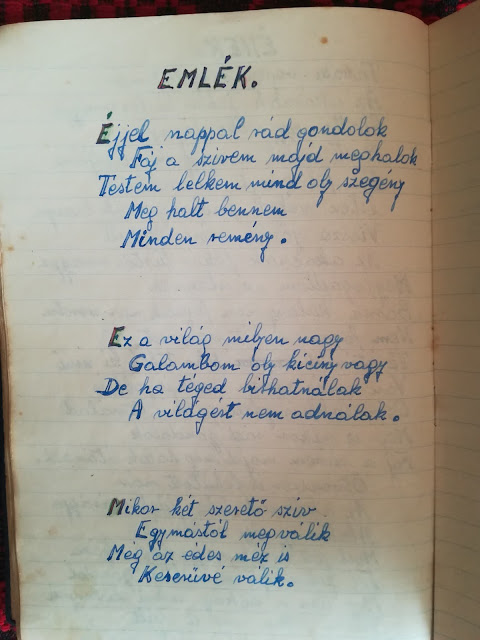 EMLÉK.
Éjjel nappal rád gondolok
Fáj a szivem majd meghalok
Testem lelkem mind oly szegény
Meg halt bennem
Minden remény.
Ez a világ miljen nagy
Galambom oly kicíny vagy
De ha téged birhatnálak
A világért nem adnálak.
Mikor két szerető sziv
Egymástól megválik
Még az édes méz is
Keserűvé válik.